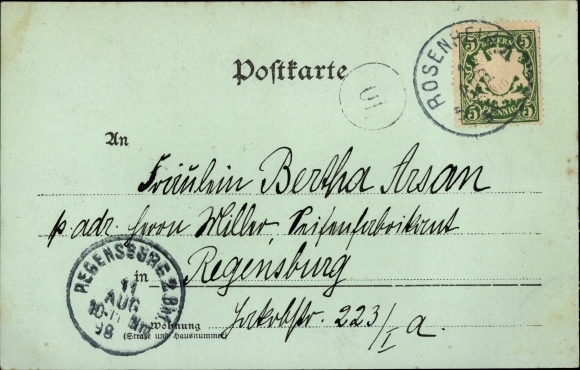 Postkarte
ROSENHEI
5 BAYERN 5
5 PFENNIG 5
An
Fräulein Bertha Arsan
p. adr. Herrn Willer, Seifenfabrikant
in Regensburg
Wohnung Jakobstr. 223/I a.
(Straße und Hausnummer)
REGENSBURG 2. BHF.
11
AUG
10-11 Nm
98